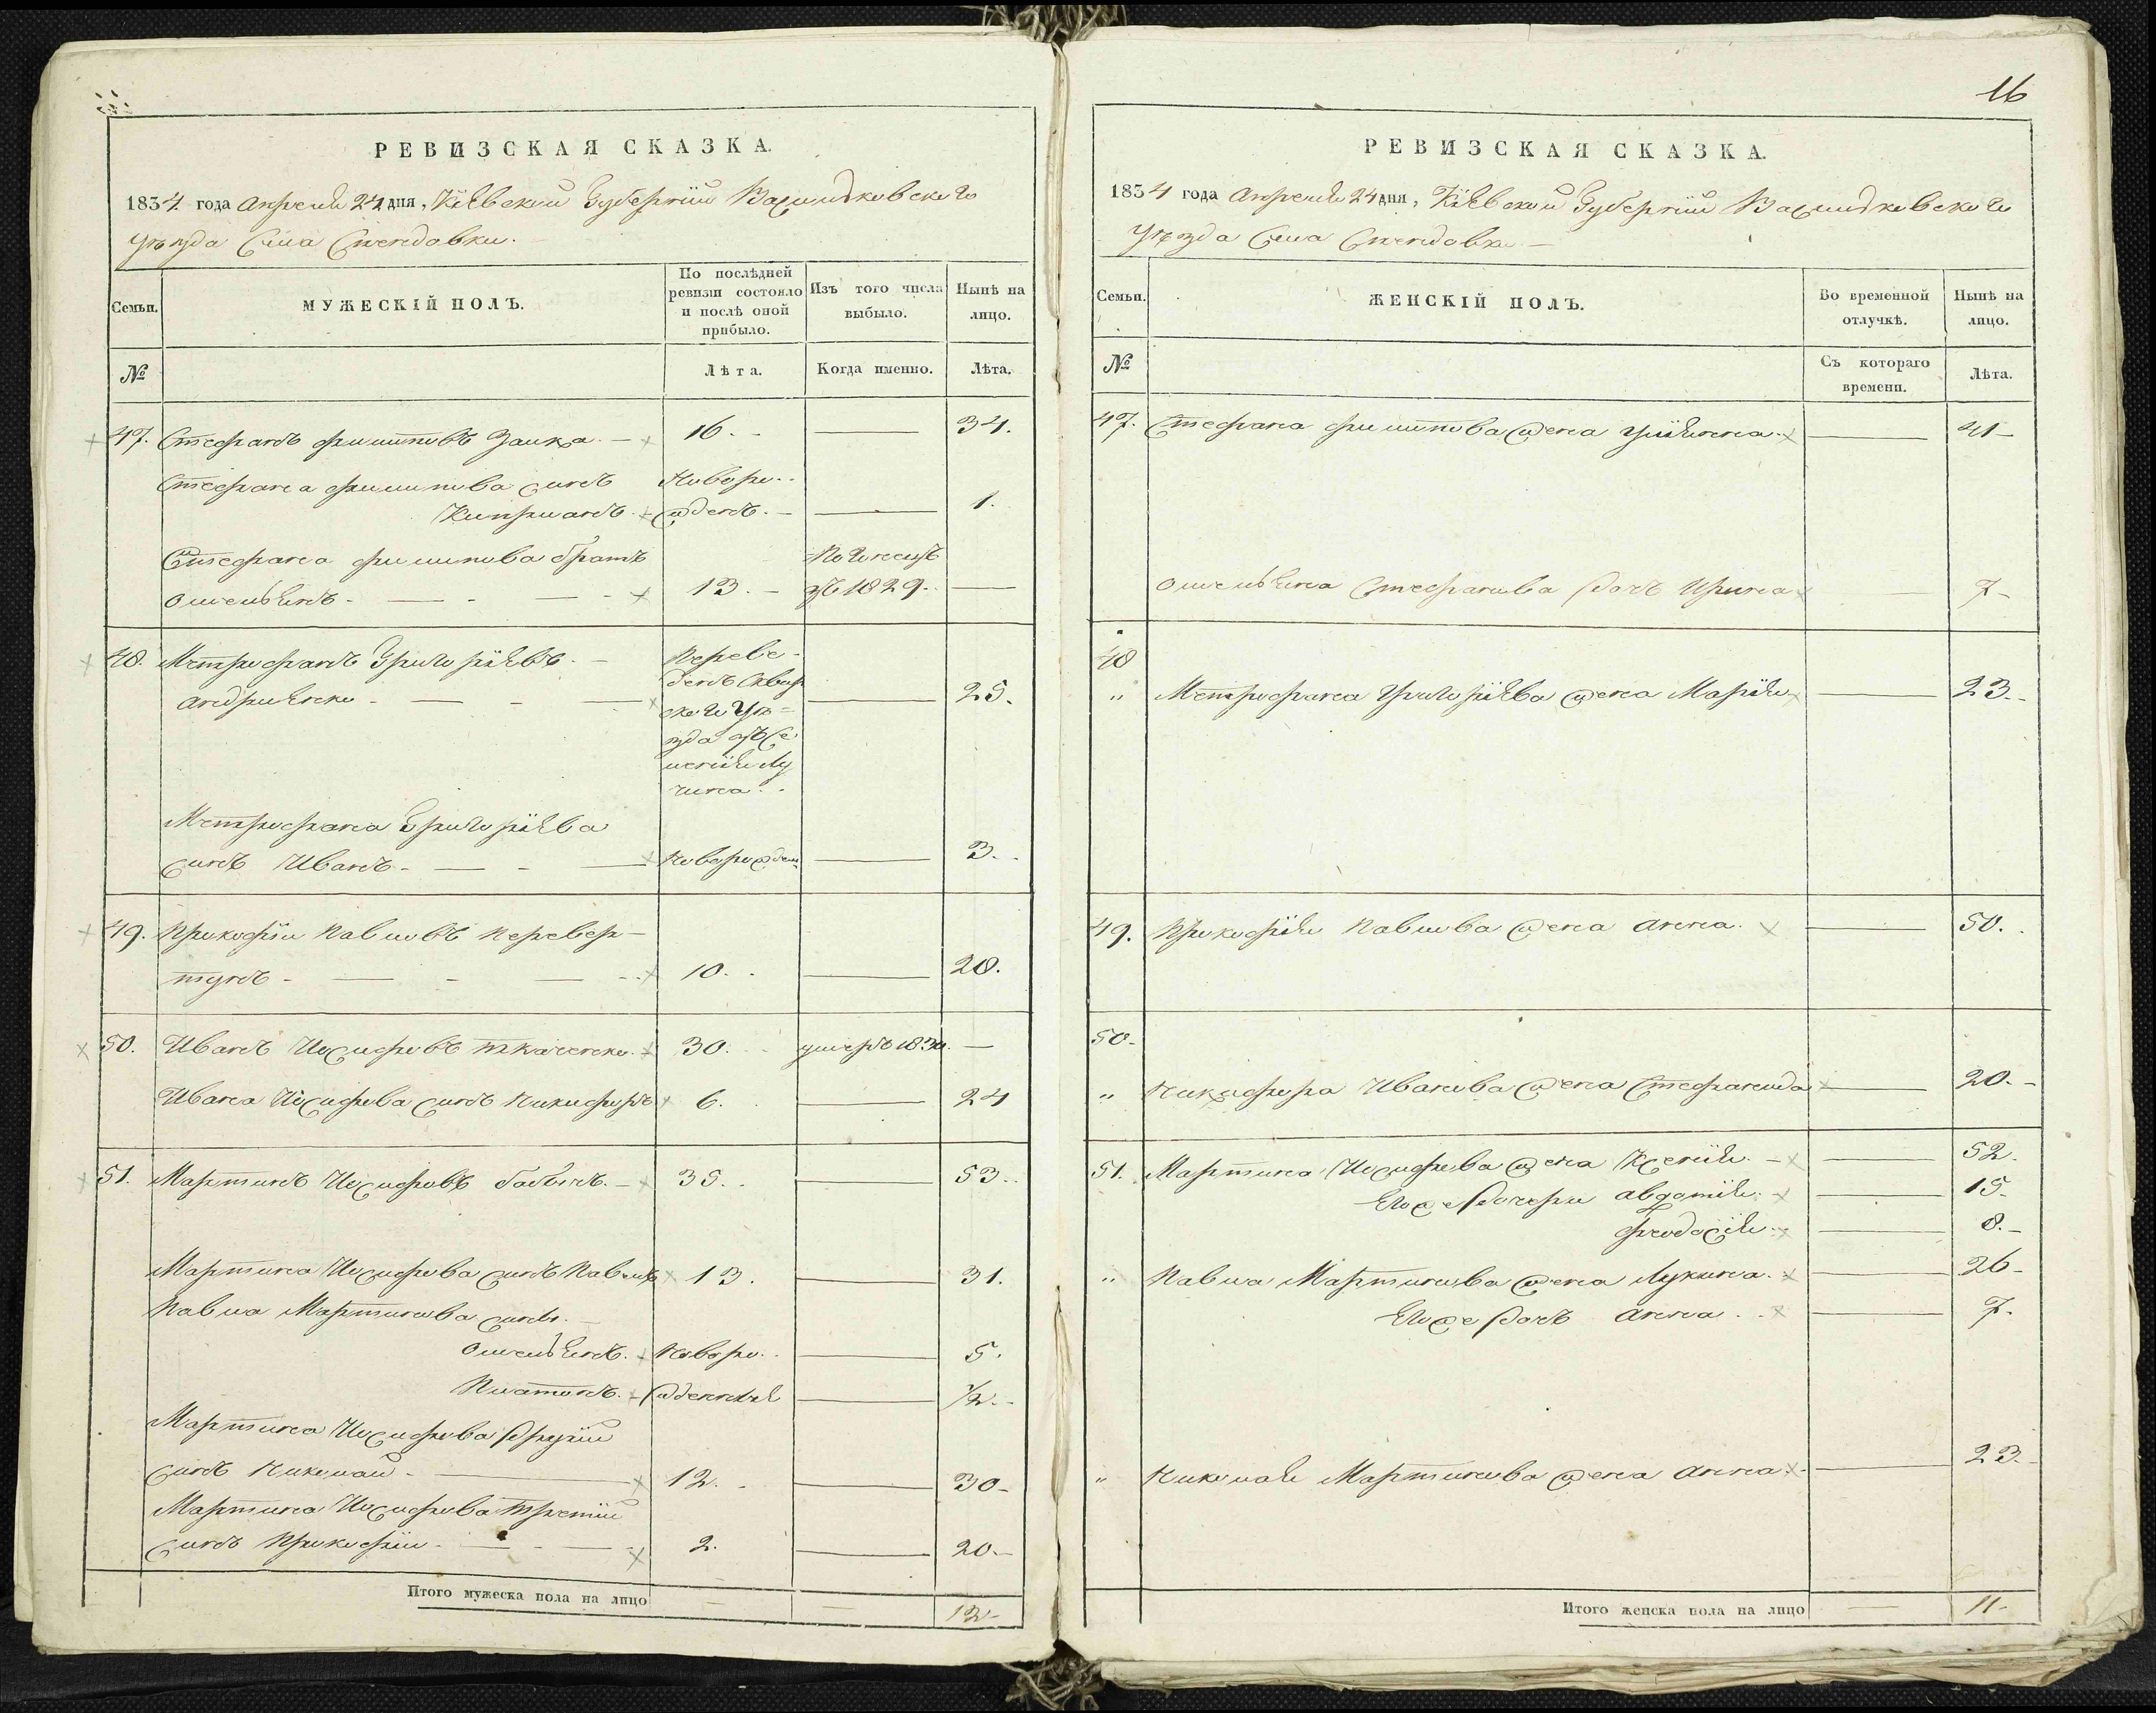 РЕВИЗСКАЯ СКАЗКА.
1834 года Апреля 24 дня, Кіевской Губерніи Васильковскаго
уѣзда Села
Семьи.
МУЖЕСКІЙ ПОЛЪ.
По послѣдней
ревизіи состояло
и послѣ оной
прибыло.
Изъ того числа
выбыло.
Нынѣ на
лицо.
№
Лѣта.
Когда именно.
Лѣта.
47. Стефанъ Филиповъ Заика. — 16. — 34.
Стефана Филипова сынъ Новоро-
Кипріанъ. — жденъ. — 1.
Стефана Филипова братъ
Омельянъ — 13. — 1829. —
48. Метрофанъ Григоріевъ — Переве-
Андріенко — денъ Сквир 25.
скаго уѣ-
зда изъ Се
ленія Лу
чина.
Метрофана Григоріева
сынъ Иванъ. — Новорожден — 3.
49. Прокофій Павловъ Перевер-
тунъ — 10. — 28.
50. Иванъ Іосифовъ Ткаченко. 30. умеръ 1830. —
Ивана Іосифова сынъ Никифоръ 6. — 24
51. Мартинъ Іосифовъ Бабичъ. — 35. — 53.
Мартина Іосифова сынъ Павелъ 13. — 31.
Павла Мартинова сыны.
Омельянъ. Новоро- — 5.
Платонъ. — жденные — 1/2.
Мартина Іосифова другій
сынъ Николай — 12. — 30-
Мартина Іосифова третій
сынъ Прокофій — 2. — 20.—
Итого мужеска пола на лицо — — 12-
16
РЕВИЗСКАЯ СКАЗКА.
1834 года Апреля 24 дня, Кіевской Губерніи Васильковскаго
уѣзда Села
Семьи.
ЖЕНСКІЙ ПОЛЪ.
Во временной
отлучкѣ.
Нынѣ на
лицо.
№
Съ котораго
времени.
Лѣта.
47. Стефана Филипова жена Уліянна. — 41-
Омельяна Стефанова дочь Ирина — 7-
48
" Метрофана Григоріева жена Марія — 23.-
49. Прокофія Павлова жена Анна. — 50.
50-
" Никифора Иванова жена Стефанида — 20.-
51. Мартина Іосифова жена Ксенія — 52.
Егоже дочери Авдотія. — 15.
Феодосія. — 8.-
" Павла Мартинова жена Лукина. — 26-
Егоже дочь Анна. — 7.
" Николая Мартинова жена Анна. — 23.
Итого женска пола на лицо — 11-